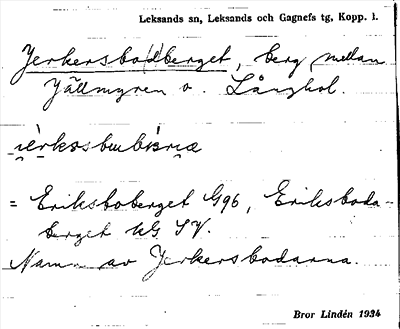 Leksands sn, Leksands och Gagnefs tg, Kopp. l.
Jerkersbo(d)berget, berg mellan
Jällmyren o. Långhol.
= Eriksboberget G96, Eriksboda-
berget kG SV.
Namn av Jerkersbodarna.
Bror Lindén 1934